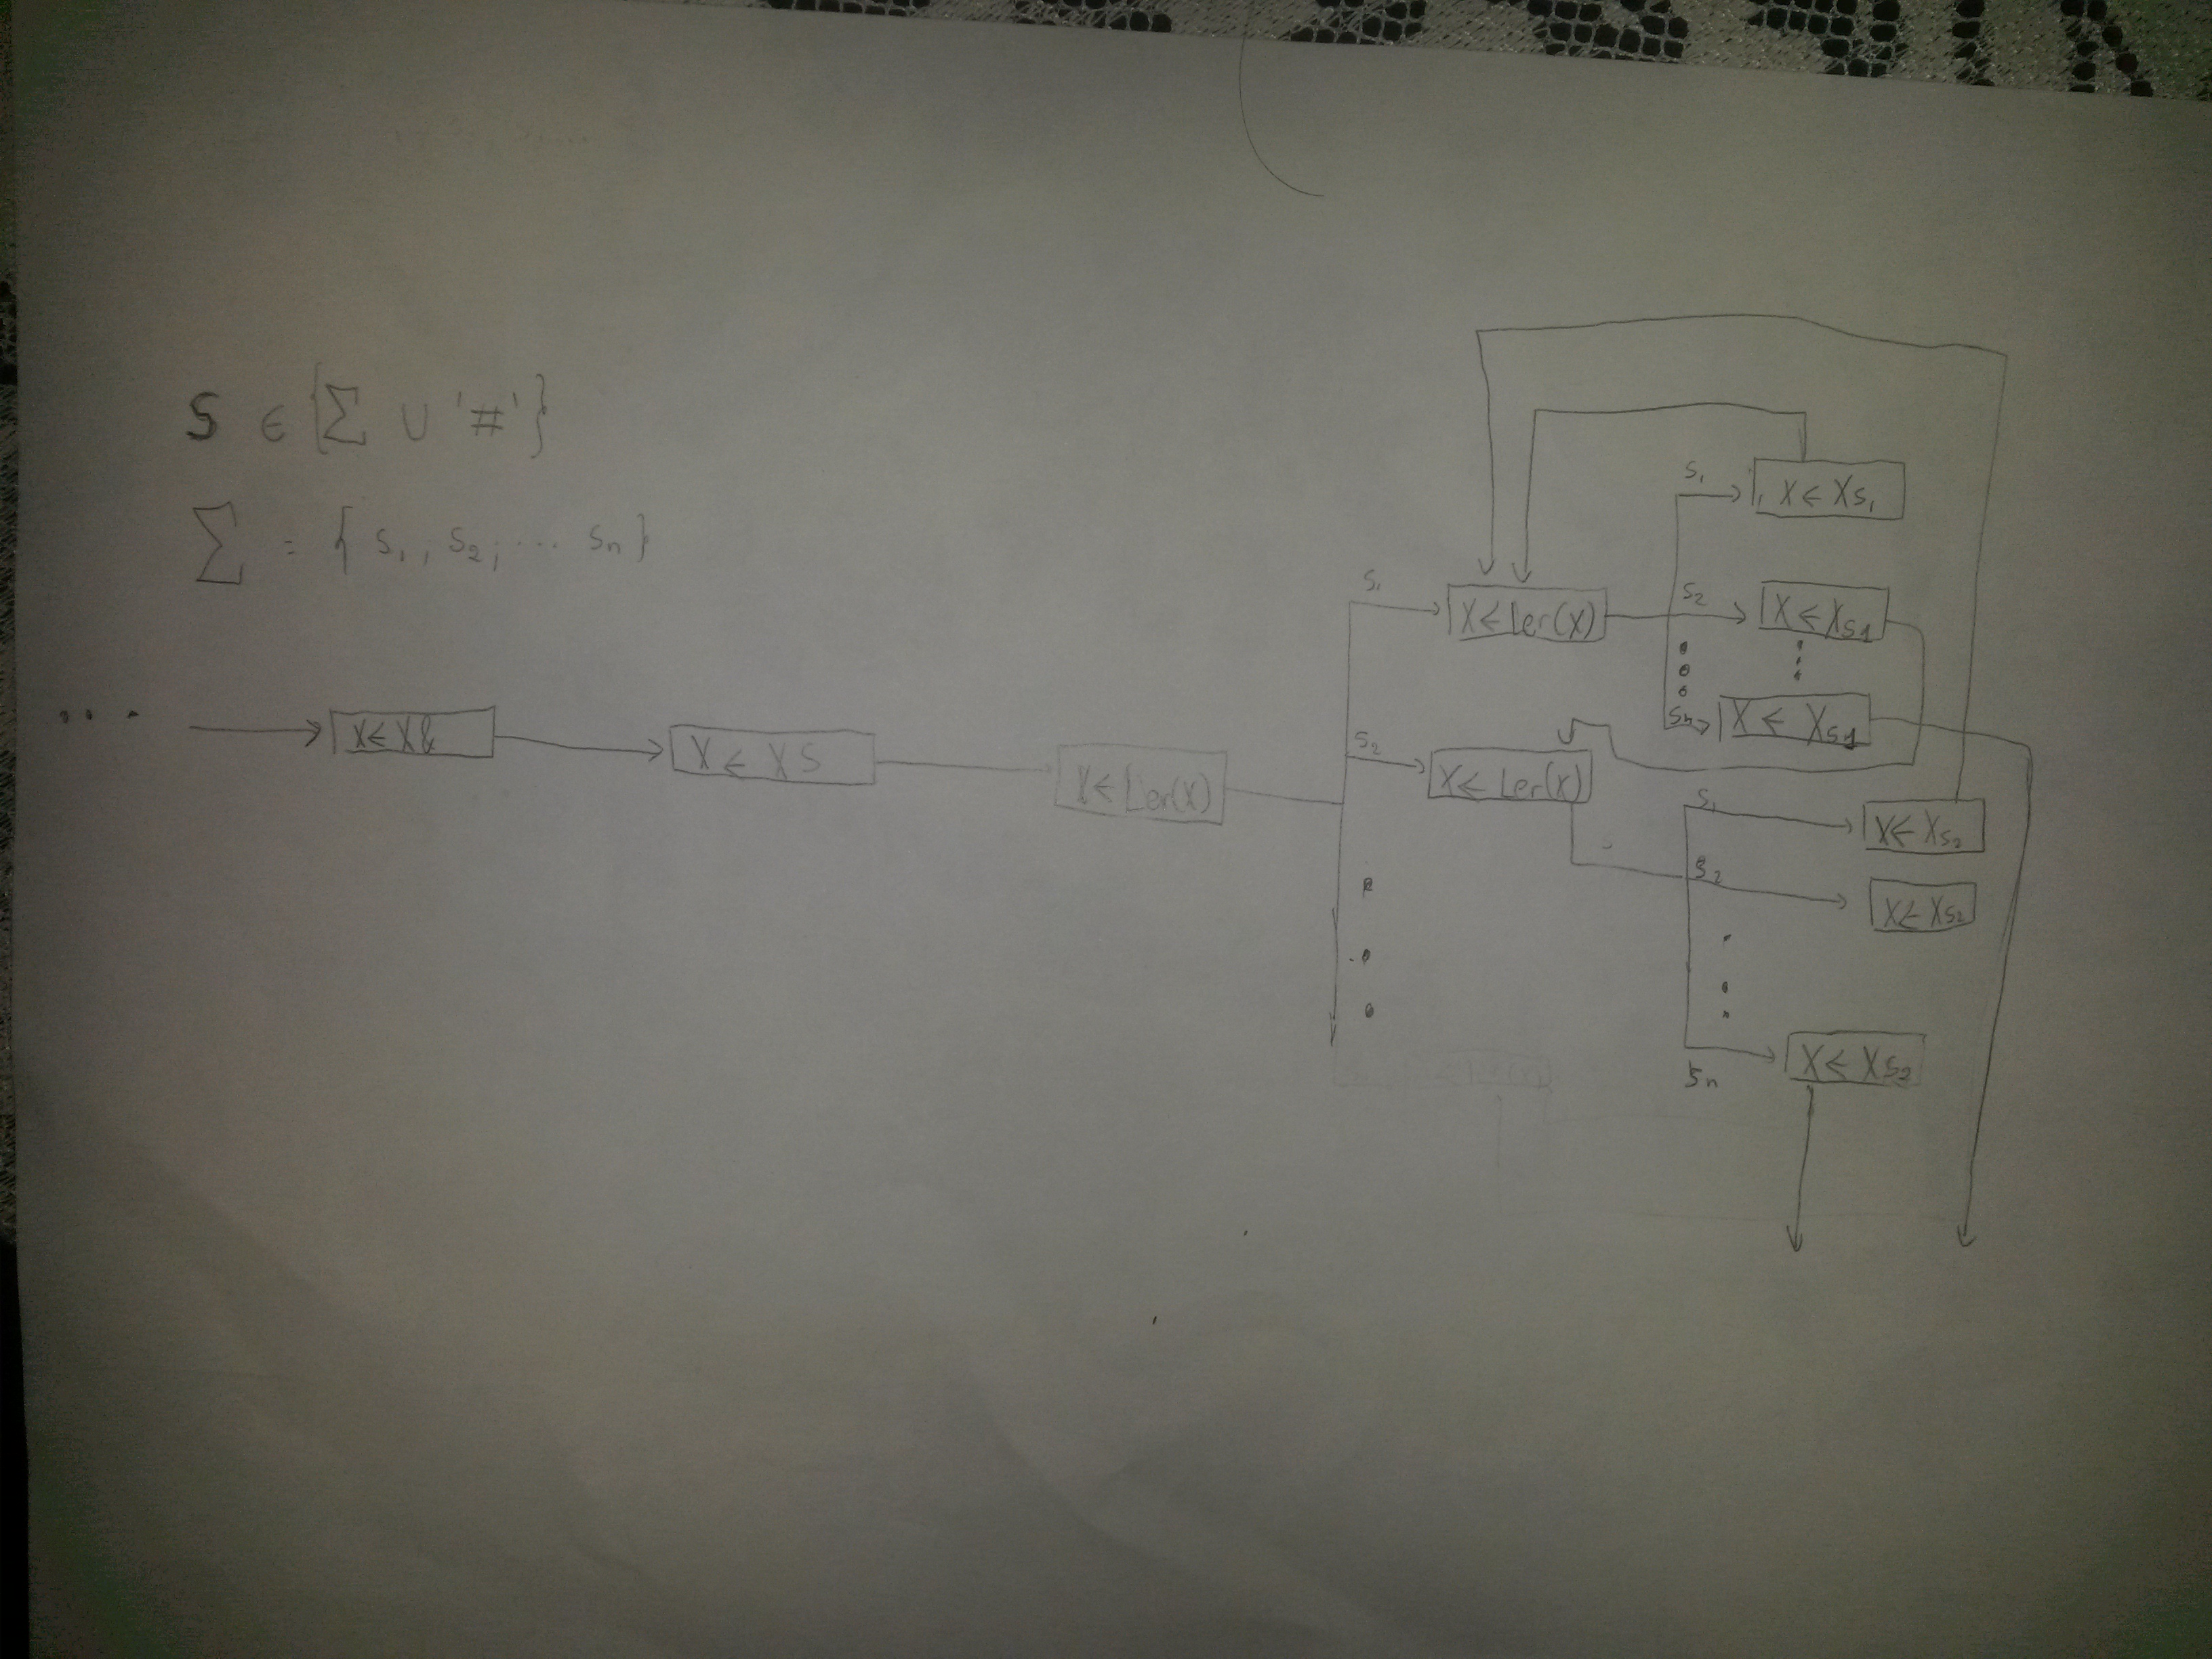 S ∈ {Σ ∪ '#'}
Σ = { s₁; s₂; ... sₙ}
... X ← X& X ← XS X ← Ler(X)
s₁ X ← Ler(X)
s₁ X ← Xs₁
s₂ X ← Xs₁
sₙ X ← Xs₁
s₂ X ← Ler(X)
s₁ X ← Xs₂
s₂ X ← Xs₂
sₙ X ← Xs₂